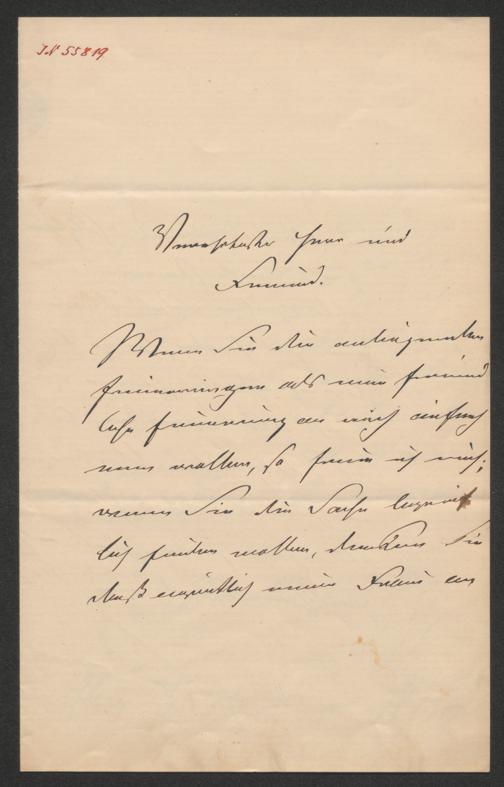 IN 55819
Verehrtester Herr und
Freund.
Wenn Sie die anliegenden
Erinnerungen als eine freund
liche Erinnerung an mich aufneh
men wollen, so freue ich mich;
wenn Sie die Sache begreif
lich finden wollen, denken Sie
daß eigentlich meine Frau an